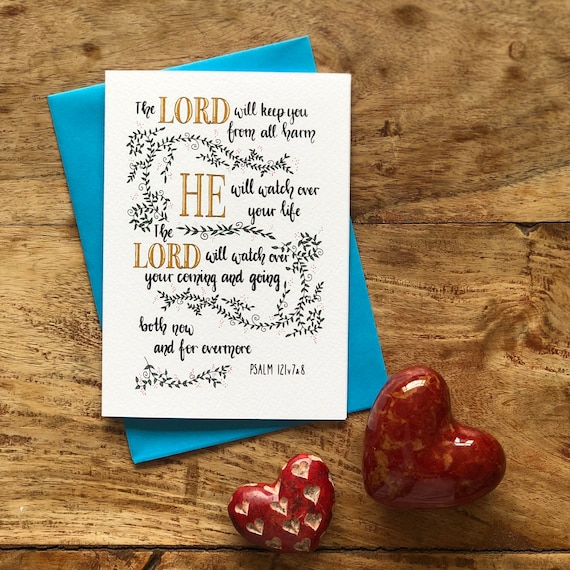 The LORD will keep you
from all harm
HE will watch over
your life
The
LORD will watch over
your coming and going
both now
and for evermore
PSALM 121v7&8